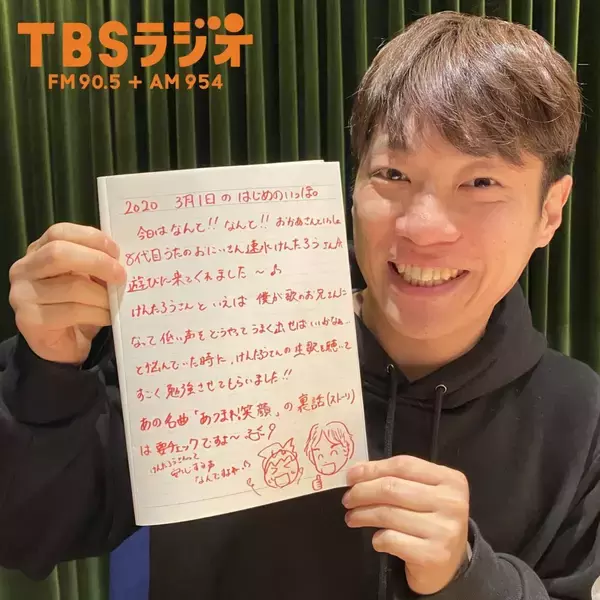 TBSラジオ
FM 90.5 + AM 954
2020 3月1日の はじめのいっぽ。
今日はなんと!! なんと!! おかあさんといっしょ
8代目うたのおにいさん 速水けんたろうさんが
遊びに来てくれました〜♪
けんたろうさんといえば 僕が歌のお兄さんに
なって低い声をどうやってうまく出せばいいかなぁ
と悩んでいた時に、けんたろうさんの生歌を聴いて
すごく勉強させてもらいました!!
あの名曲「あつまれ笑顔」の裏話(ストーリー)
は要チェックですよ〜
けんたろうさんって
する声
なんですよね。